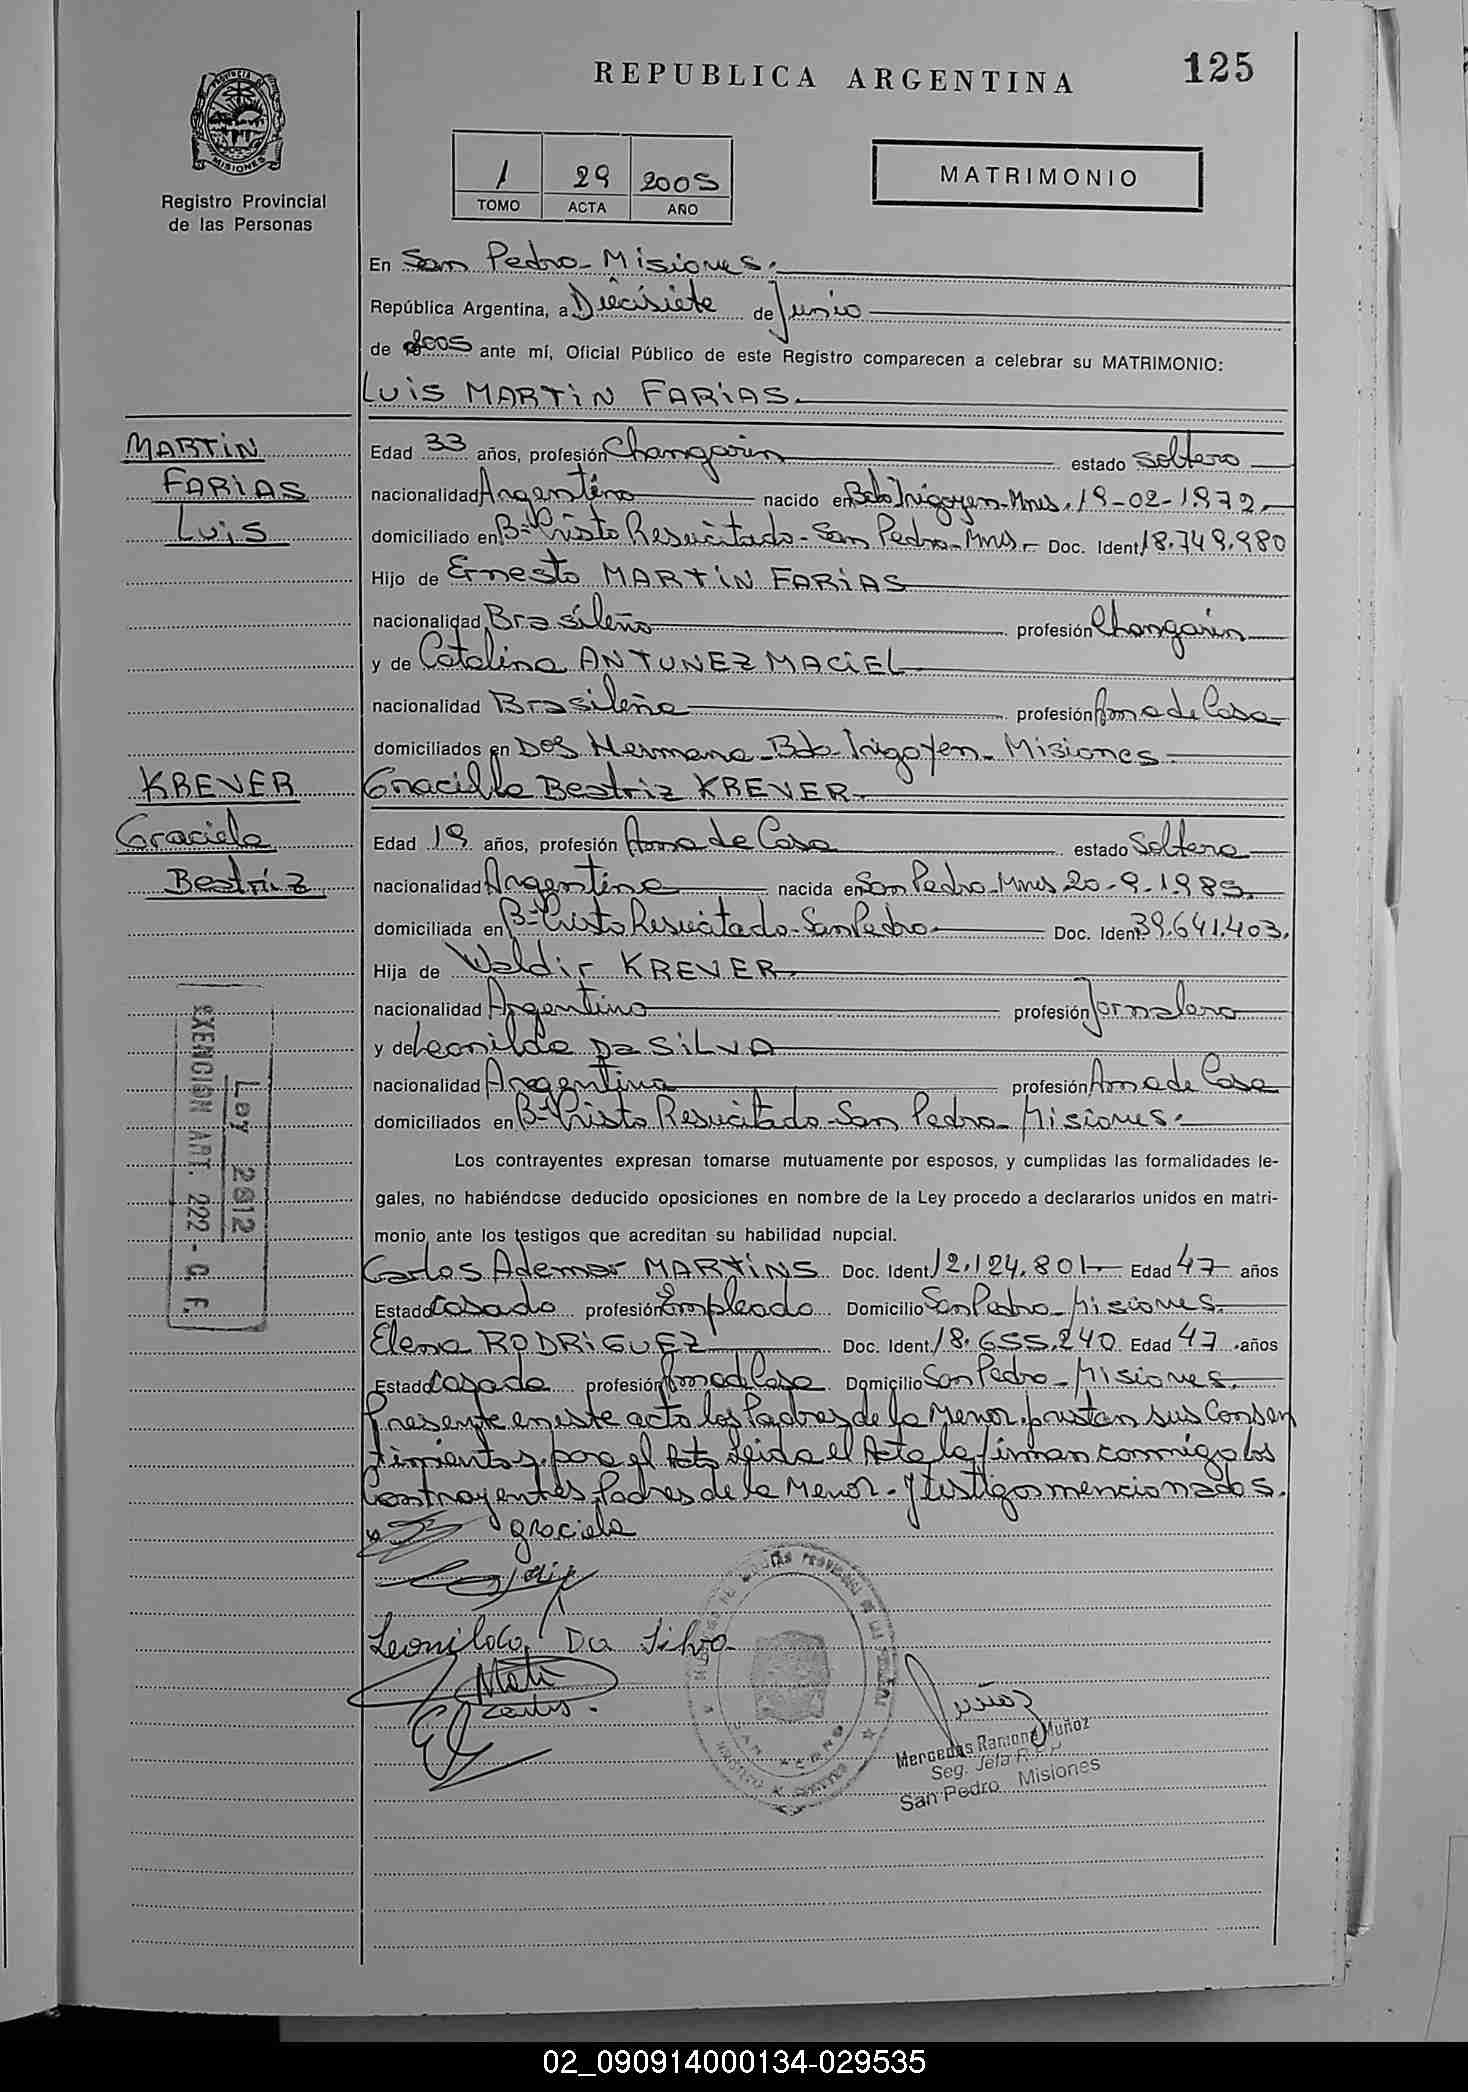 REPUBLICA ARGENTINA
125
PROVINCIA DE
MISIONES
Registro Provincial
de las Personas
1 29 2005
TOMO ACTA AÑO
MATRIMONIO
En San Pedro - Misiones.
República Argentina, a Diecisiete de Junio
de 2005 ante mí, Oficial Público de este Registro comparecen a celebrar su MATRIMONIO:
Luis MARTIN FARIAS.
MARTIN
FARIAS
Luis
Edad 33 años, profesión Changarin estado Soltero
nacionalidad Argentino nacido en Bdo Irigoyen - Mnes. 19-02-1.972
domiciliado en Bº Cristo Resucitado - San Pedro - Mns - Doc. Ident 18.749.980
Hijo de Ernesto MARTIN FARIAS
nacionalidad Brasileño profesión Changarin
y de Catalina ANTUNEZ MACIEL
nacionalidad Brasileña profesión Ama de Casa
domiciliados en Dos Hermana - Bdo Irigoyen - Misiones
KREVER
Graciela
Beatriz
Graciela Beatriz KREVER
Edad 19 años, profesión Ama de Casa estado Soltera
nacionalidad Argentina nacida en San Pedro - Mnes 20-9-1.985
domiciliada en Bº Cristo Resucitado - San Pedro - Doc. Ident 39.641.403.
Hija de Waldir KREVER
nacionalidad Argentino profesión Jornalero
y de Leonilda Da SILVA
nacionalidad Argentina profesión Ama de Casa
domiciliados en Bº Cristo Resucitado - San Pedro - Misiones.
EXENCION ART. 222 - C. F.
Ley 2612
Los contrayentes expresan tomarse mutuamente por esposos, y cumplidas las formalidades le-
gales, no habiéndose deducido oposiciones en nombre de la Ley procedo a declararlos unidos en matri-
monio ante los testigos que acreditan su habilidad nupcial.
Carlos Ademar MARTINS Doc. Ident 12.124.801 Edad 47 años
Estado Casado profesión Empleado Domicilio San Pedro - Misiones.
Elena RODRIGUEZ Doc. Ident 18.655.240 Edad 47 años
Estado Casada profesión Ama de Casa Domicilio San Pedro - Misiones.
Presente en este acto los Padres de la Menor, prestan sus Consen
timientos para el Acto Leida el Acta la firman conmigo los
Contrayentes, Padres de la Menor - y testigos mencionados.
graciela
Leonilda Da Silva
Muñoz
Mercedes Ramona Muñoz
Seg. Jefa R.P.P
San Pedro Misiones
02_090914000134-029535